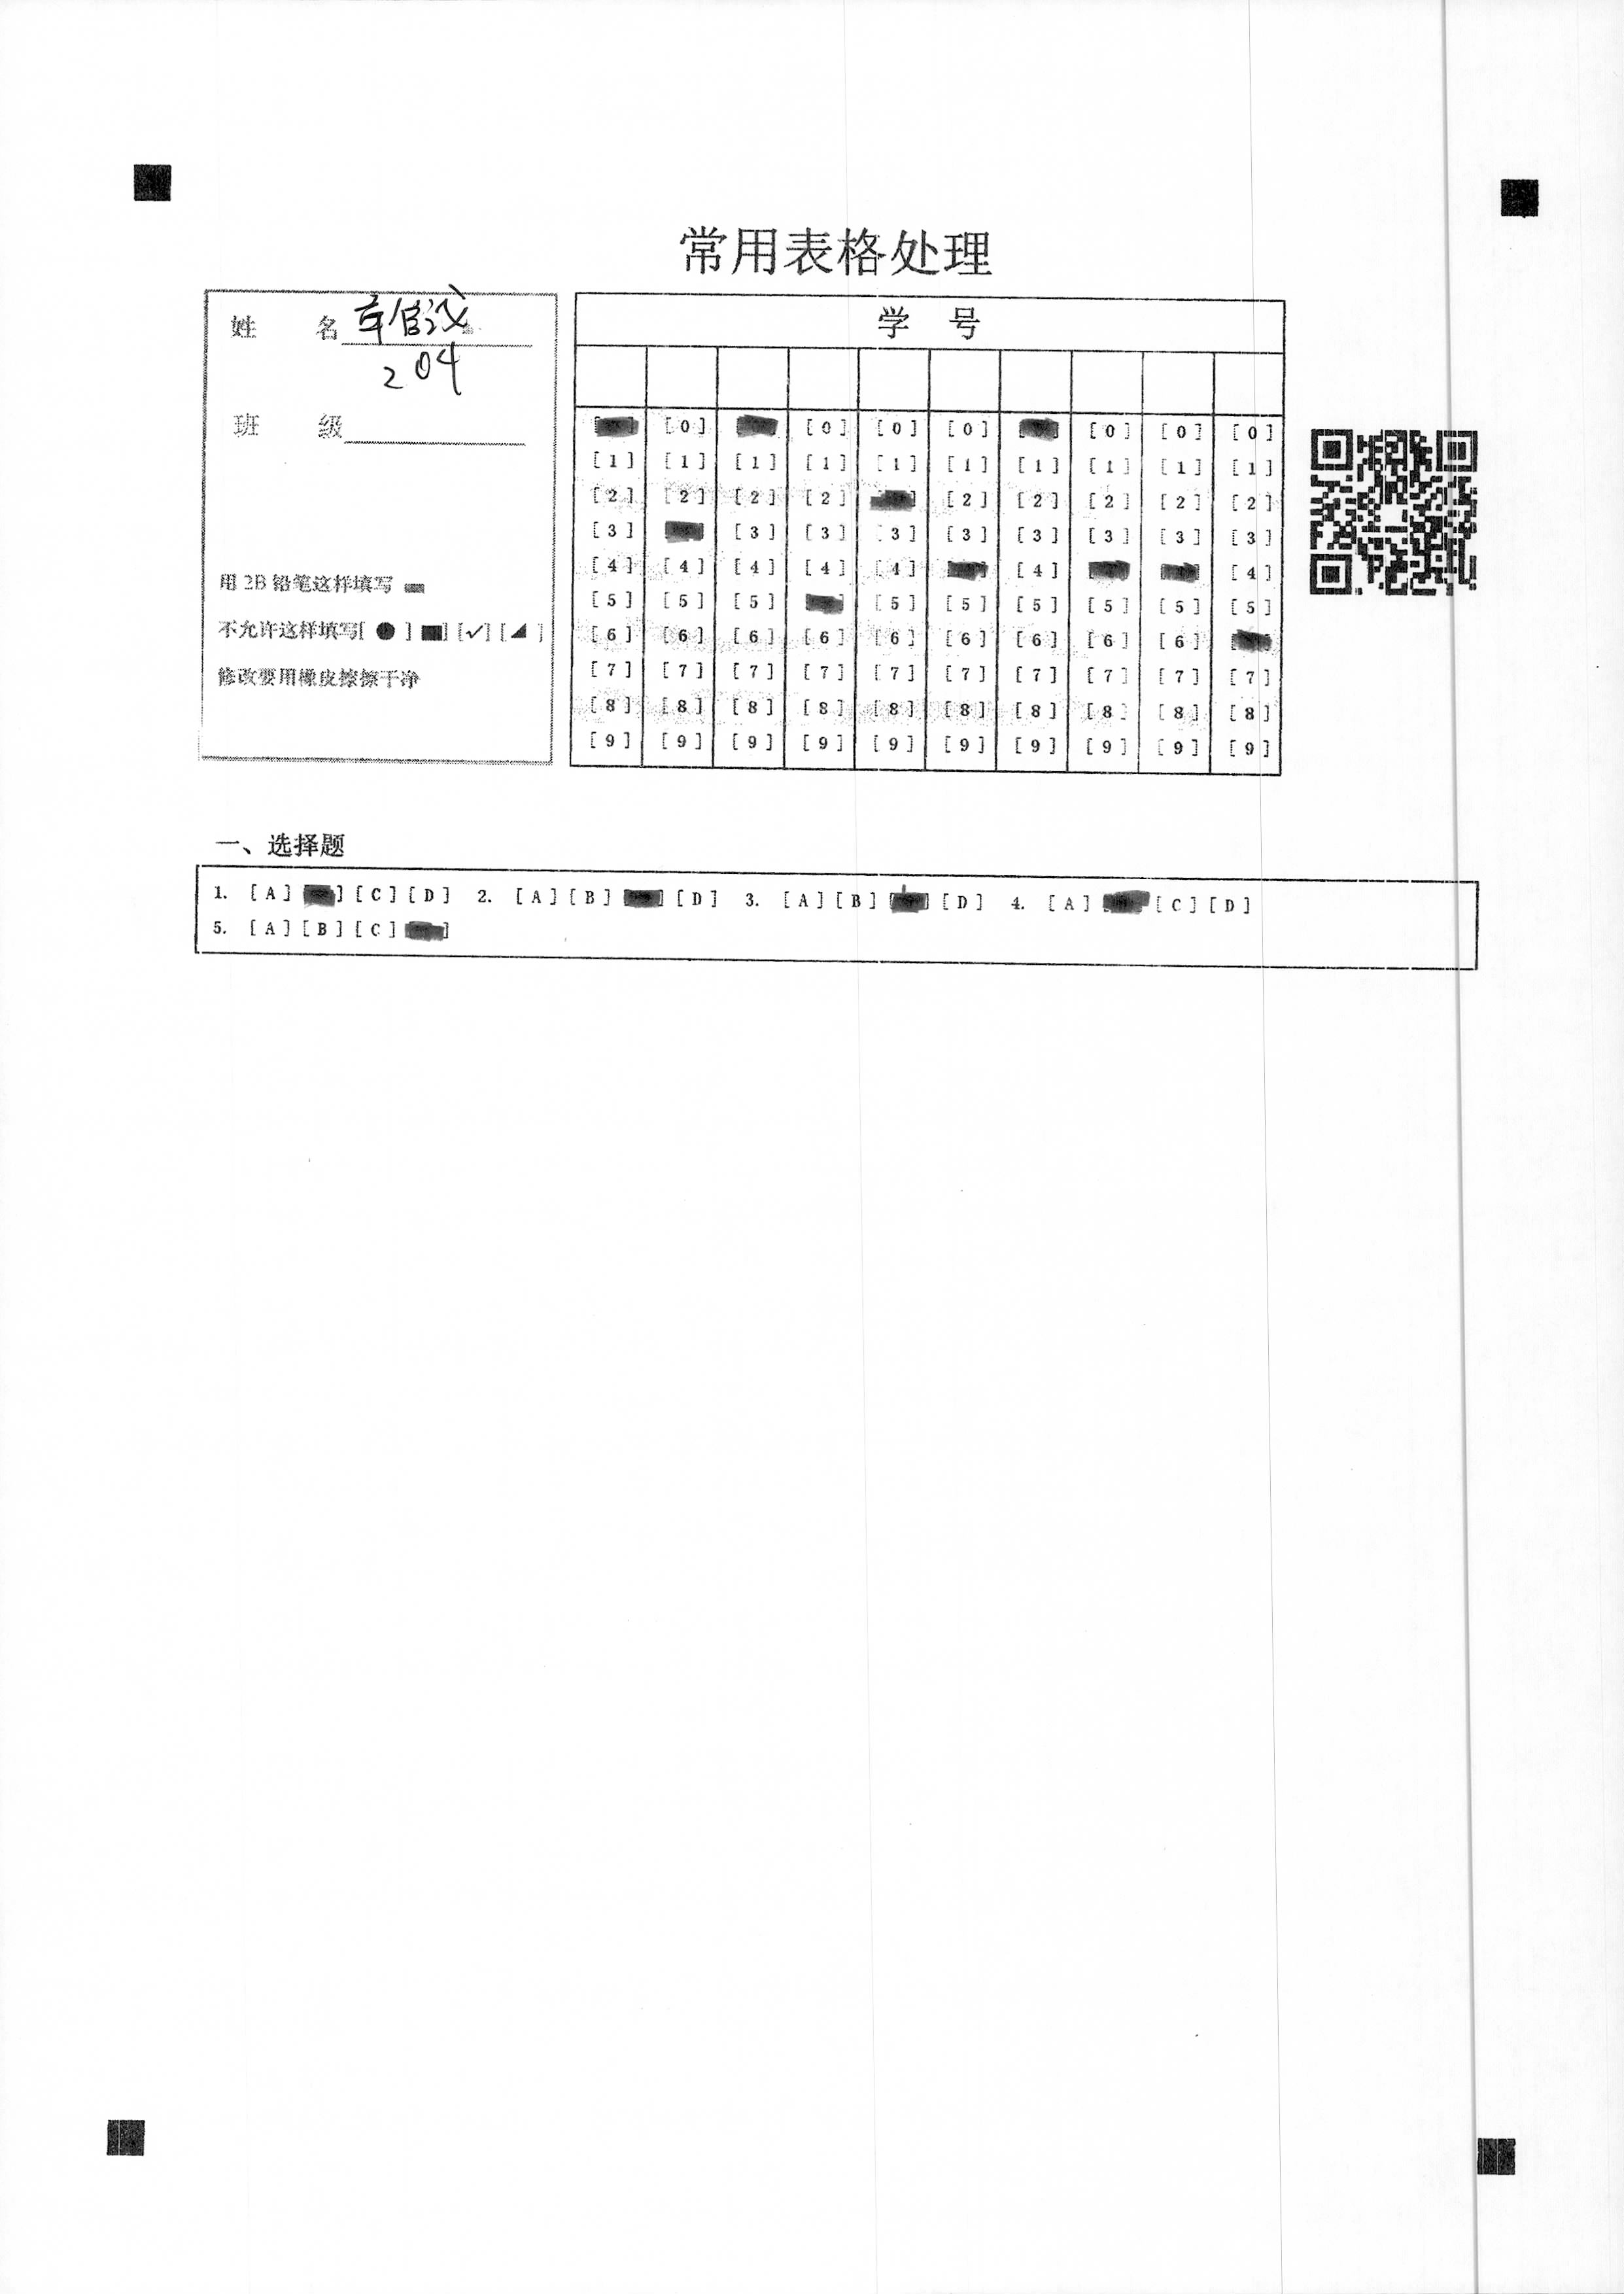 常用表格处理
姓 名
204
班 级
用 2B 铅笔这样填写
不允许这样填写[ ● ] ■] [✓] [◢ ]
修改要用橡皮擦擦干净
学 号
[0] [0] [0] [0] [0] [0] [0]
[1] [1] [1] [1] [1] [1] [1] [1] [1] [1]
[2] [2] [2] [2] [2] [2] [2] [2] [2]
[3] [3] [3] [3] [3] [3] [3] [3] [3]
[4] [4] [4] [4] [4] [4] [4]
[5] [5] [5] [5] [5] [5] [5] [5] [5]
[6] [6] [6] [6] [6] [6] [6] [6] [6]
[7] [7] [7] [7] [7] [7] [7] [7] [7] [7]
[8] [8] [8] [8] [8] [8] [8] [8] [8] [8]
[9] [9] [9] [9] [9] [9] [9] [9] [9] [9]
一、选择题
1. [A] [C] [D] 2. [A] [B] [D] 3. [A] [B] [D] 4. [A] [C] [D]
5. [A] [B] [C]